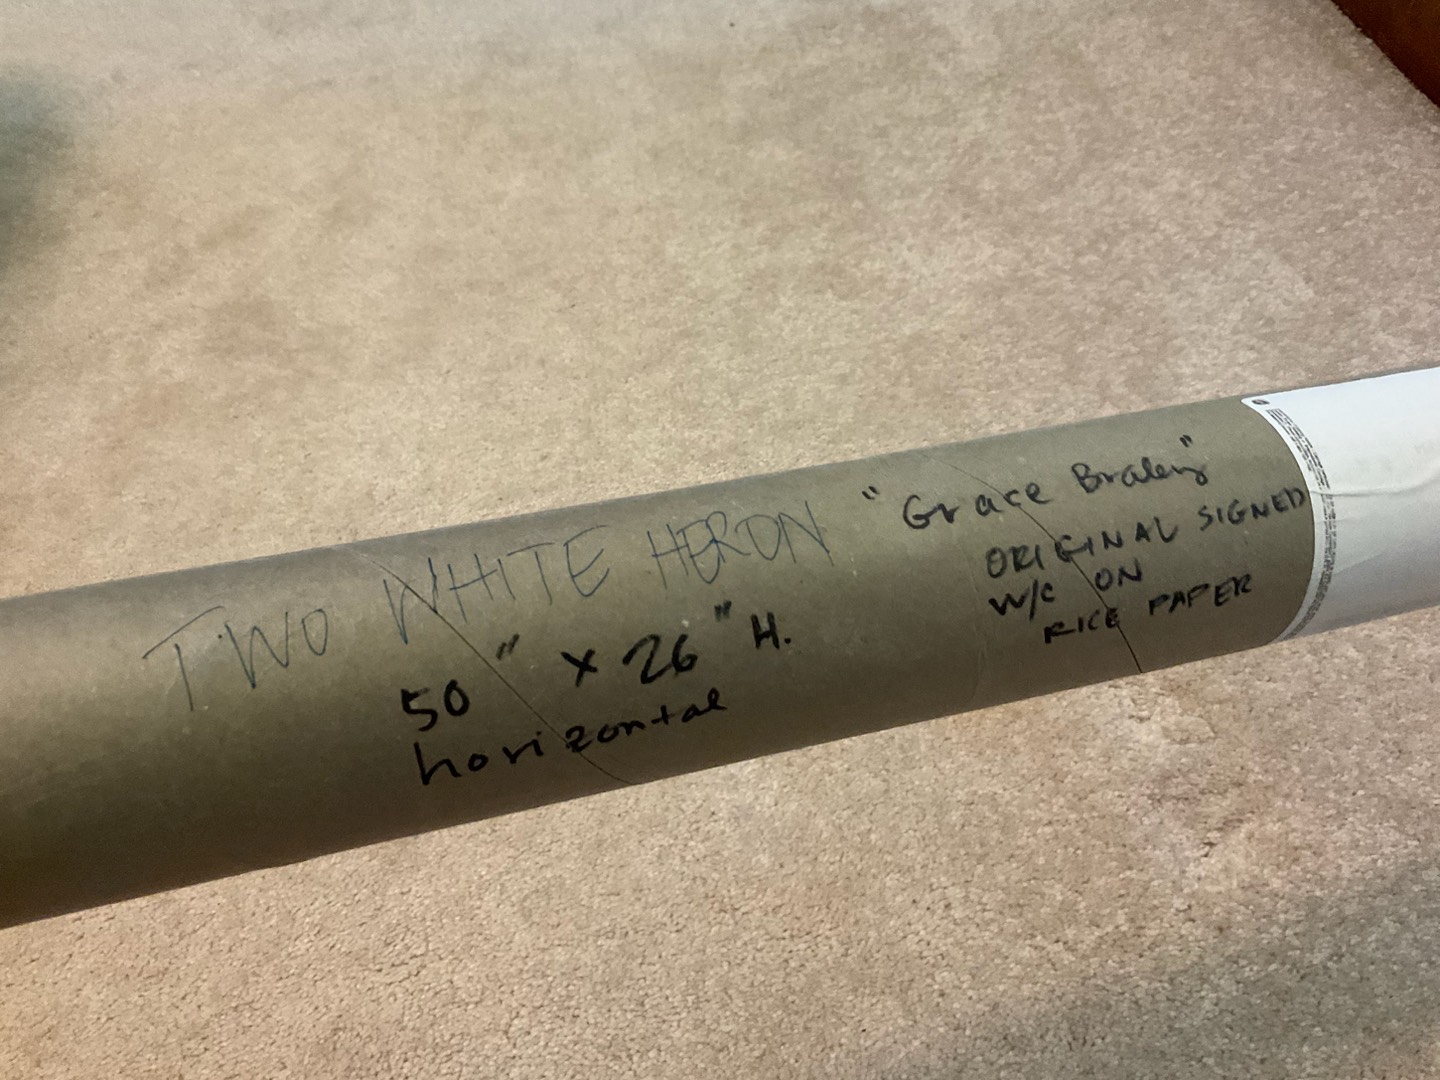 TWO WHITE HERON
50" x 26" H.
horizontal
"Grace Braley"
ORIGINAL SIGNED
W/C ON
RICE PAPER